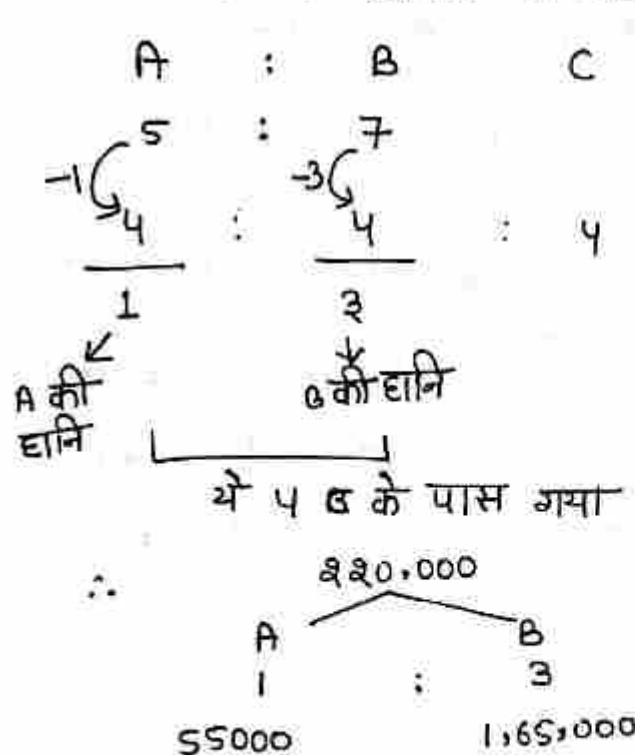 A : B C
5 : 7
-1 -3
4 : 4 : 4
1 3
A की B की हानि
हानि
ये 4 C के पास गया
∴ 220,000
A B
1 : 3
55000 1,65,000